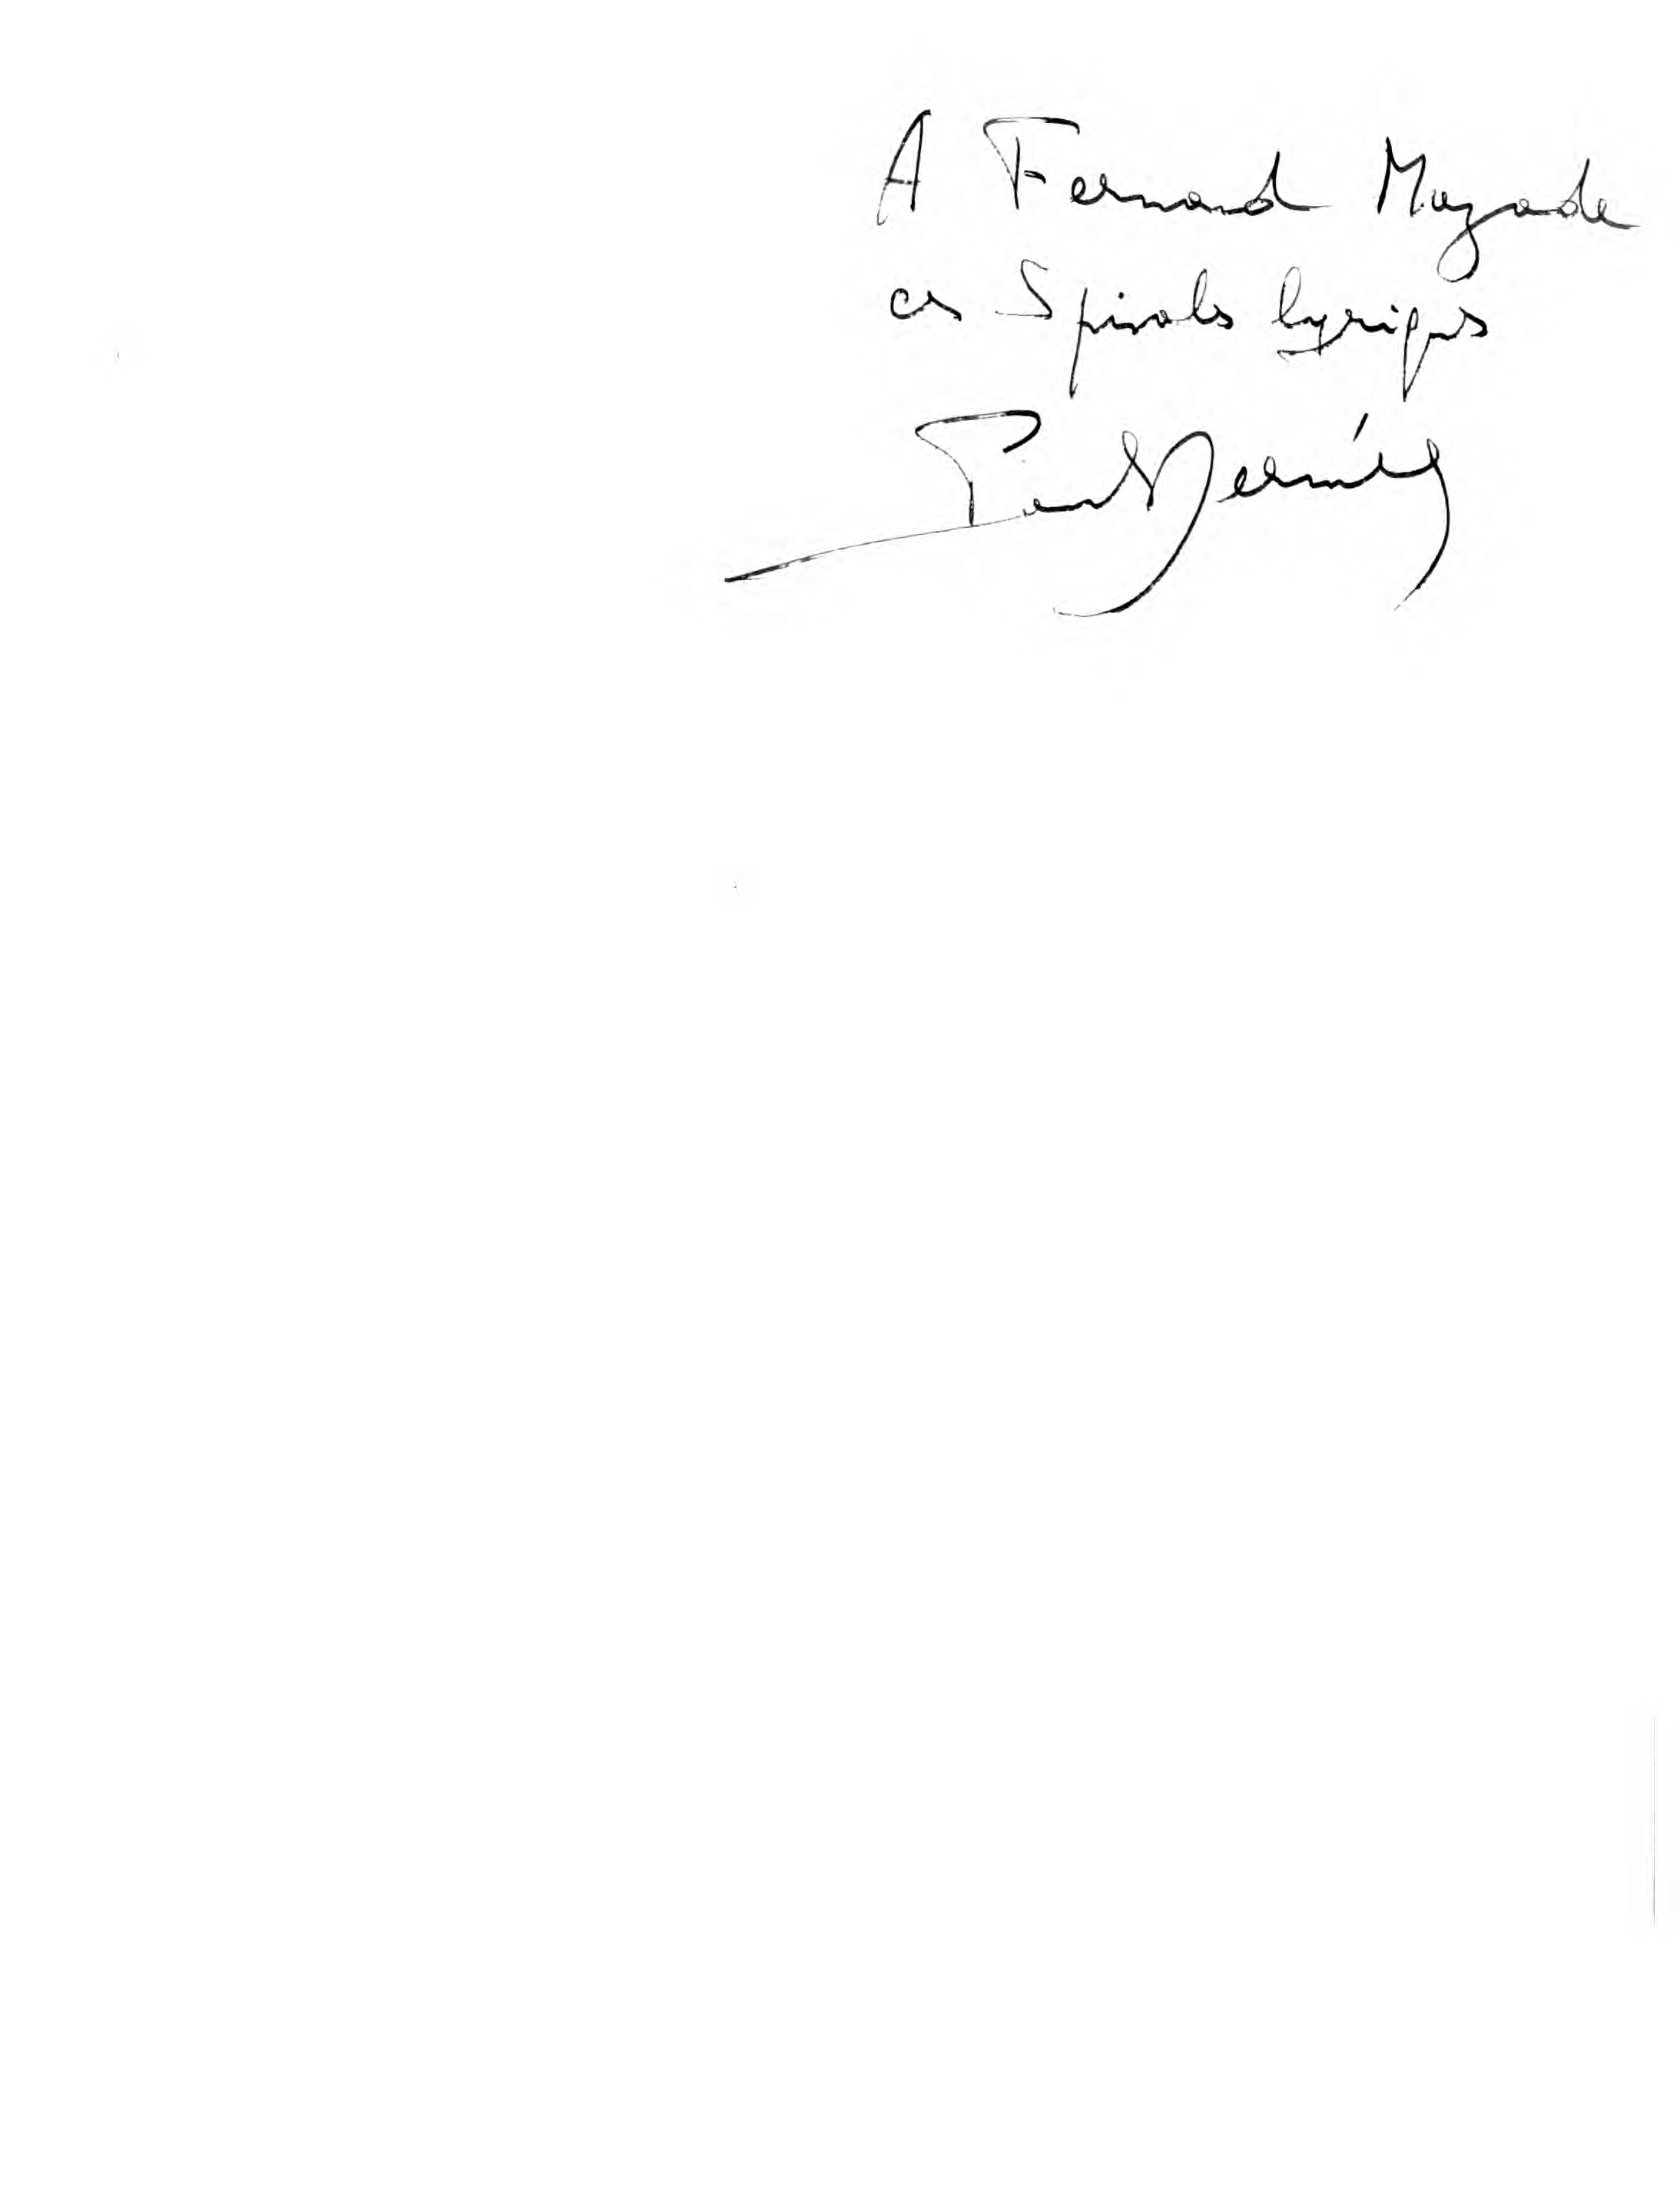 A Fernand Mazade
ces Spirales lyriques
Paul Dermée